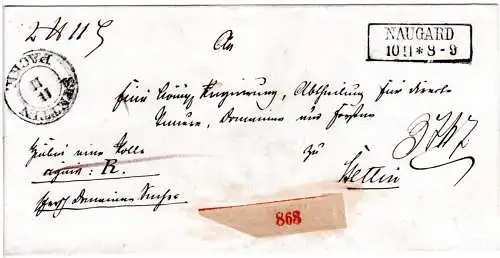 2 ℔ 11
An
NAUGARD
10 11 * 8 - 9
STETTIN
11
11
PACKK.
Eine Königl. Regierung, Abtheilung für directe
Steuern, Domainen und Forsten
zu
Stettin
hiebei eine Rolle
sign: R.
Herrsch. Domainen Sache
868